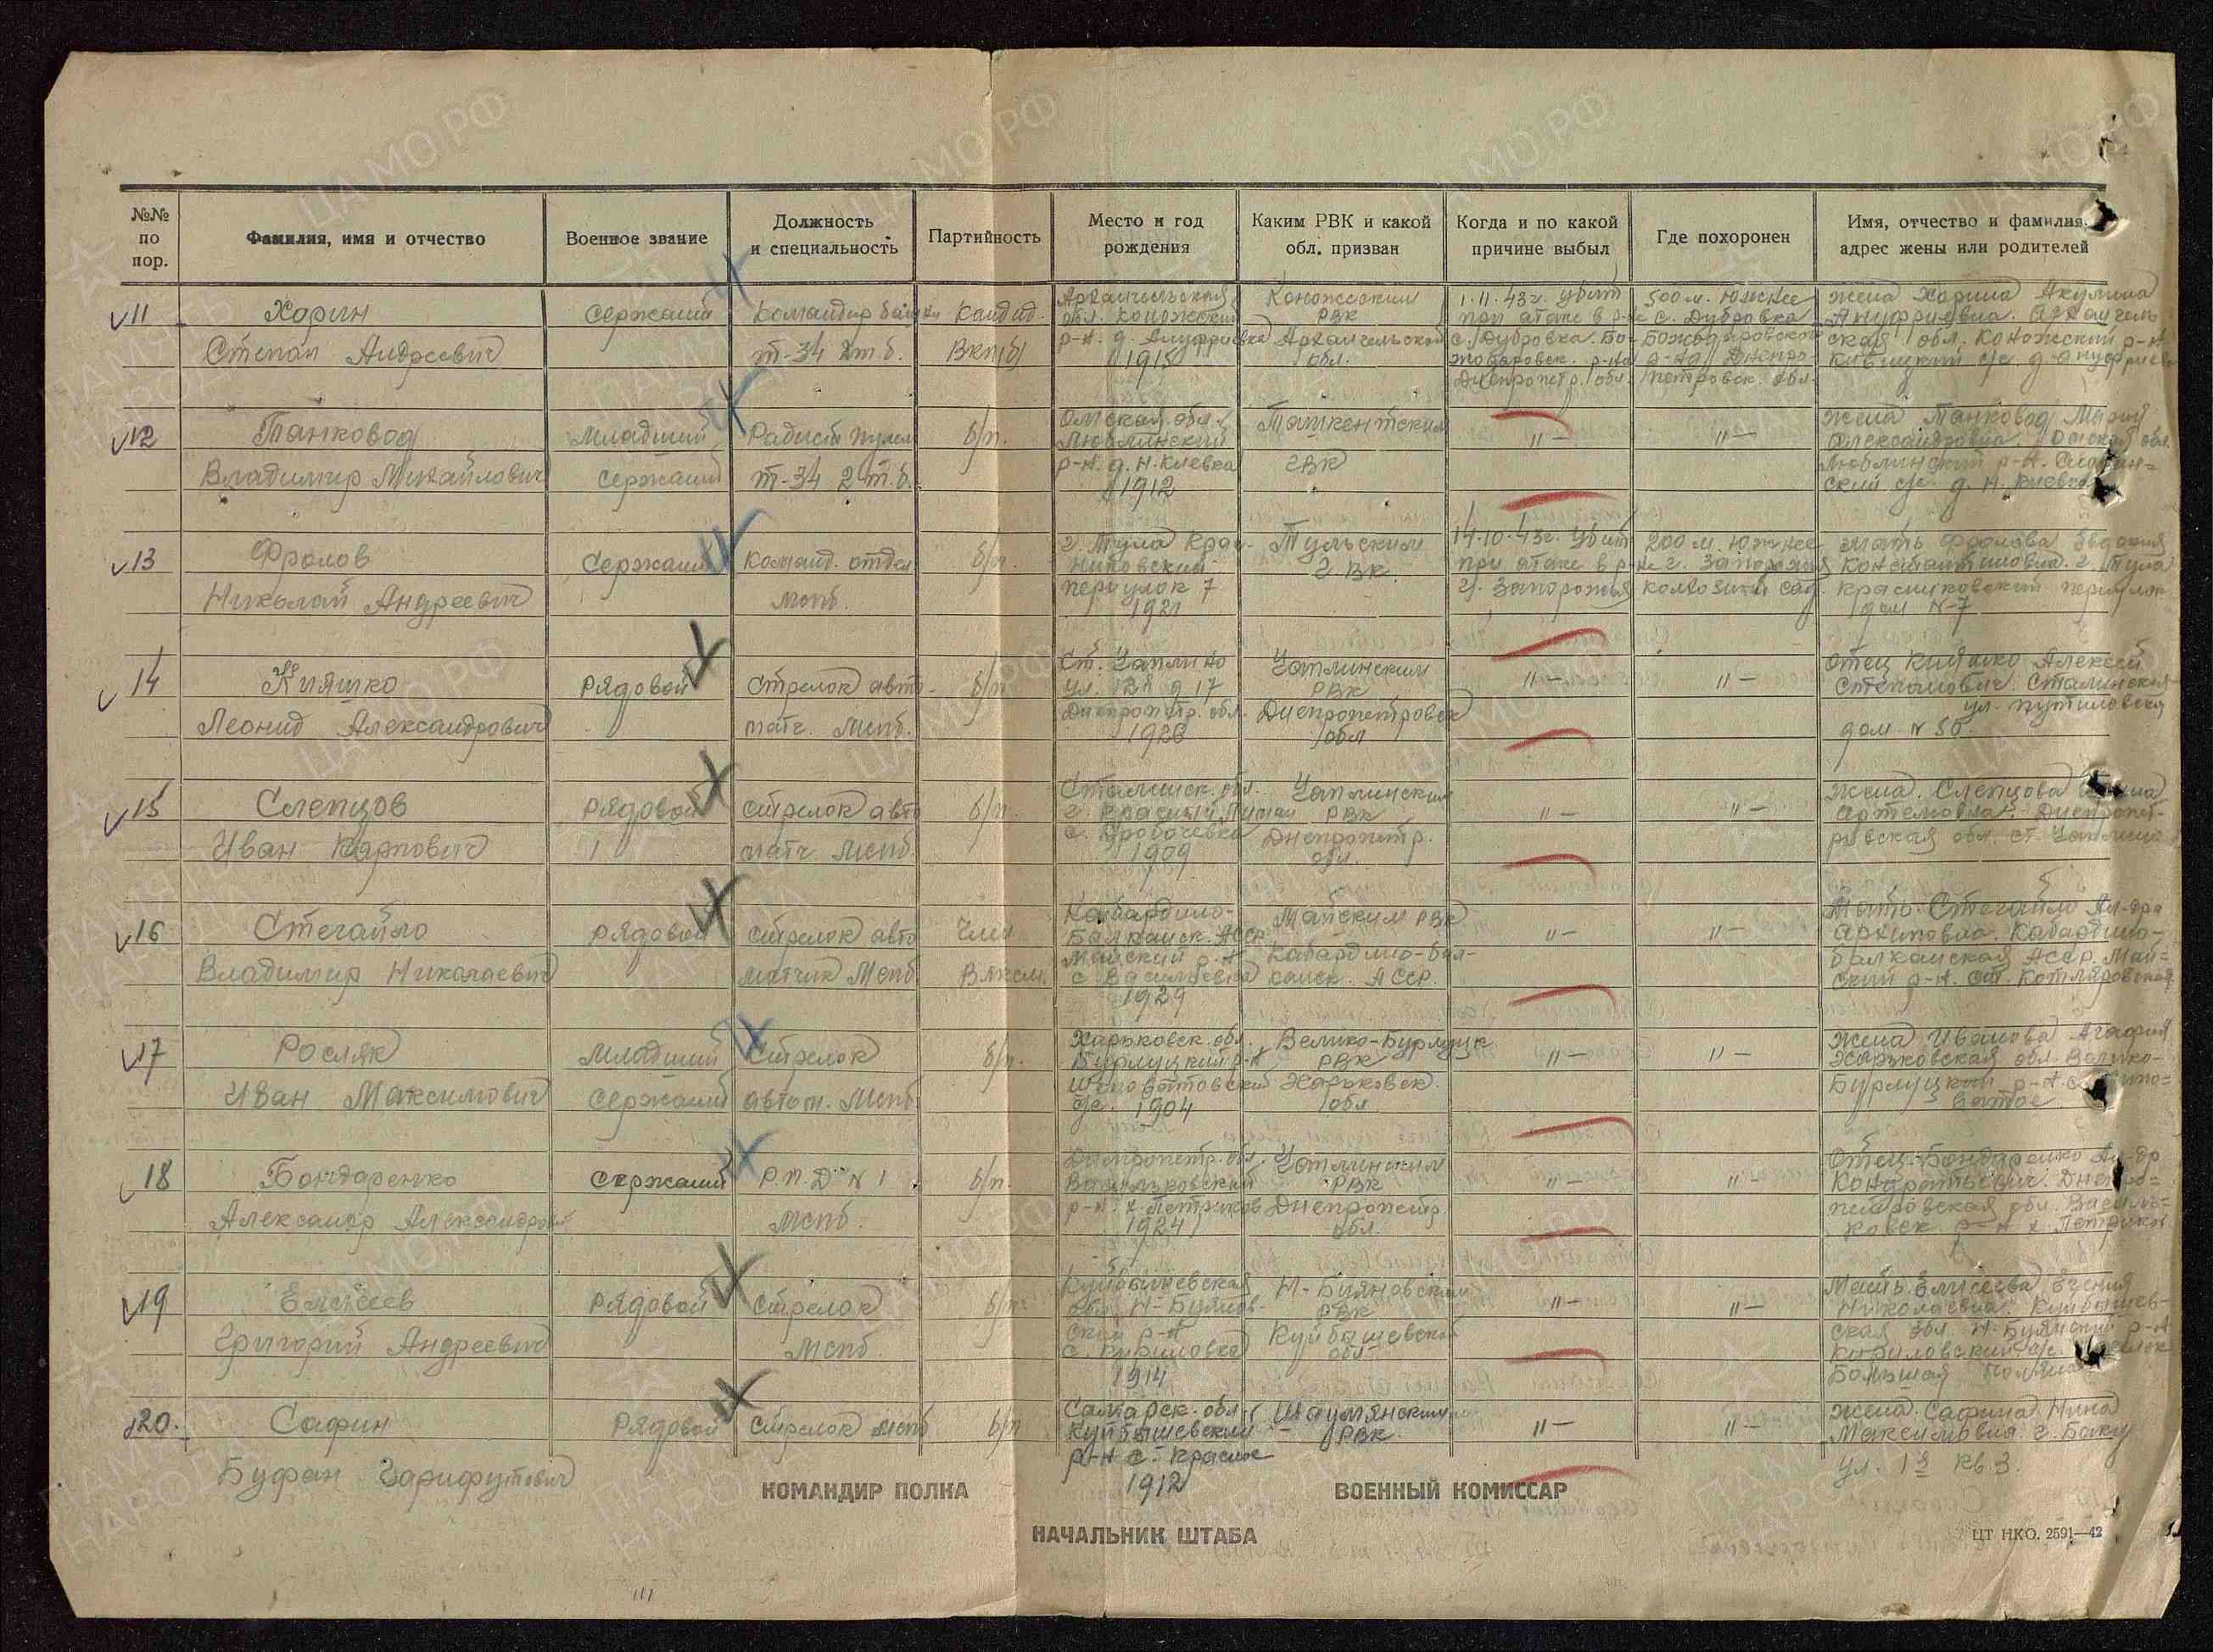 №№ по пор.
Фамилия, имя и отчество
Военное звание
Должность и специальность
Партийность
Место и год рождения
Каким РВК и какой обл. призван
Когда и по какой причине выбыл
Где похоронен
Имя, отчество и фамилия, адрес жены или родителей
11 Харин Сержант Командир башни Кандид. Архангельская Коножским 1.11.43г. убит 500 м. Южнее жена Харина Акулина
обл. Коножский РВК при атаке в р-не с. Дубровка Ануфриевна. Архангель
Степан Андреевич т-34 2 т.б. ВКП(б) р-н. д. Ануфриевка Архангельской с. Дубровка Бо- Божедаровского ская обл. Коножский р-н
1915 обл. жедаровск. р-на р-на Днепро- с/с д. Ануфриев
Днепропетр. обл. петровск. обл.
12 Танковод Младший Радист пулем б/п. Омская обл. Ташкентским "— "— жена Танковод Мария
Люблинский Александровна. Омская обл.
Владимир Михайлович сержант т-34 2 т.б. р-н. д. Н. Киевка ГВК Люблинский р-н.
1912 ский с/с д. Н. Киевка
13 Фролов Сержант Команд. отдел б/п. г. Тула Крас- Тульским 14.10.43г. убит 200 м. Южнее мать Фролова Евдокия
никовский Г.ВК. при атаке в р-не г. Запорожья Константиновна. г. Тула
Николай Андреевич мспб. переулок 7 г. Запорожья колхозный сад. Красниковский переулок
1921 дом №7
14 Кияшко Рядовой Стрелок авто- б/п Ст. Чаплино Чаплинским "— "— отец Кияшко Алексей
ул. д 17 РВК Степанович. Сталинская
Леонид Александрович матч. мспб. Днепропетр. обл. Днепропетровск ул. Путиловская
1926 обл дом № 50
15 Слепцов Рядовой Стрелок авто б/п. Сталинск. обл. Чаплинским "— "— жена. Слепцова
г. Красный Лиман РВК Артемовна. Днепропет-
Иван Карпович матч мспб. с. Дробачевка Днепропетр. ровская обл. ст. Чаплино
1909 обл.
16 Стегайло рядовой стрелок авто Член Кабардино- Майским РВК "— "— Мать. Стегайло Ал-дра
Балканск. АССР Архиповна. Кабардино-
Владимир Николаевич матчик мспб ВЛКСМ. Майский р-н Кабардино-Бал- Балканская АССР. Май-
с. Васильевка канск. АССР. ский р-н. ст. Котляровская
1924
17 Росляк Младший Стрелок б/п. Харьковск. обл. Велико-Бурлуцк "— "— жена Иванова Агафия
Бурлуцкий р-н РВК Харьковская обл. Велико-
Иван Максимович Сержант автом. мспб Шиповатовский Харьковск. Бурлуцкий р-н с.
с/с. 1904 обл. ватое
18 Бондаренко сержант Р.П.Д № 1 б/п. Днепропетр. обл. Чаплинским "— "— отец Бондаренко Ал-др
Васильковский РВК Кондратьевич. Днепро=
Александр Александрович мспб. р-н. х. Петриков Днепропетр. петровская обл. Василь=
1924 обл. ковск. р-н х. Петриков
19 Елисеев Рядовой Стрелок б/п Куйбышевская Н-Буяновским "— "— Мать Елисеева
обл. Н-Буянов- РВК Николаевна. Куйбышев-
Григорий Андреевич мспб. ский р-н Куйбышевской ская обл. Н-Буянский р-н
с. Кириловка обл Кириловский с/с. поселок
1914 Большая Поляна
20. Сафин Рядовой Стрелок мспб б/п Самарск. обл. Шаумянским "— "— Жена. Сафина Нина
Куйбышевский РВК Максимовна. г. Баку
Буфан Гарифутович р-н с. Красное ул. кв 3.
1912
КОМАНДИР ПОЛКА ВОЕННЫЙ КОМИССАР
НАЧАЛЬНИК ШТАБА
ЦТ НКО. 2591—42